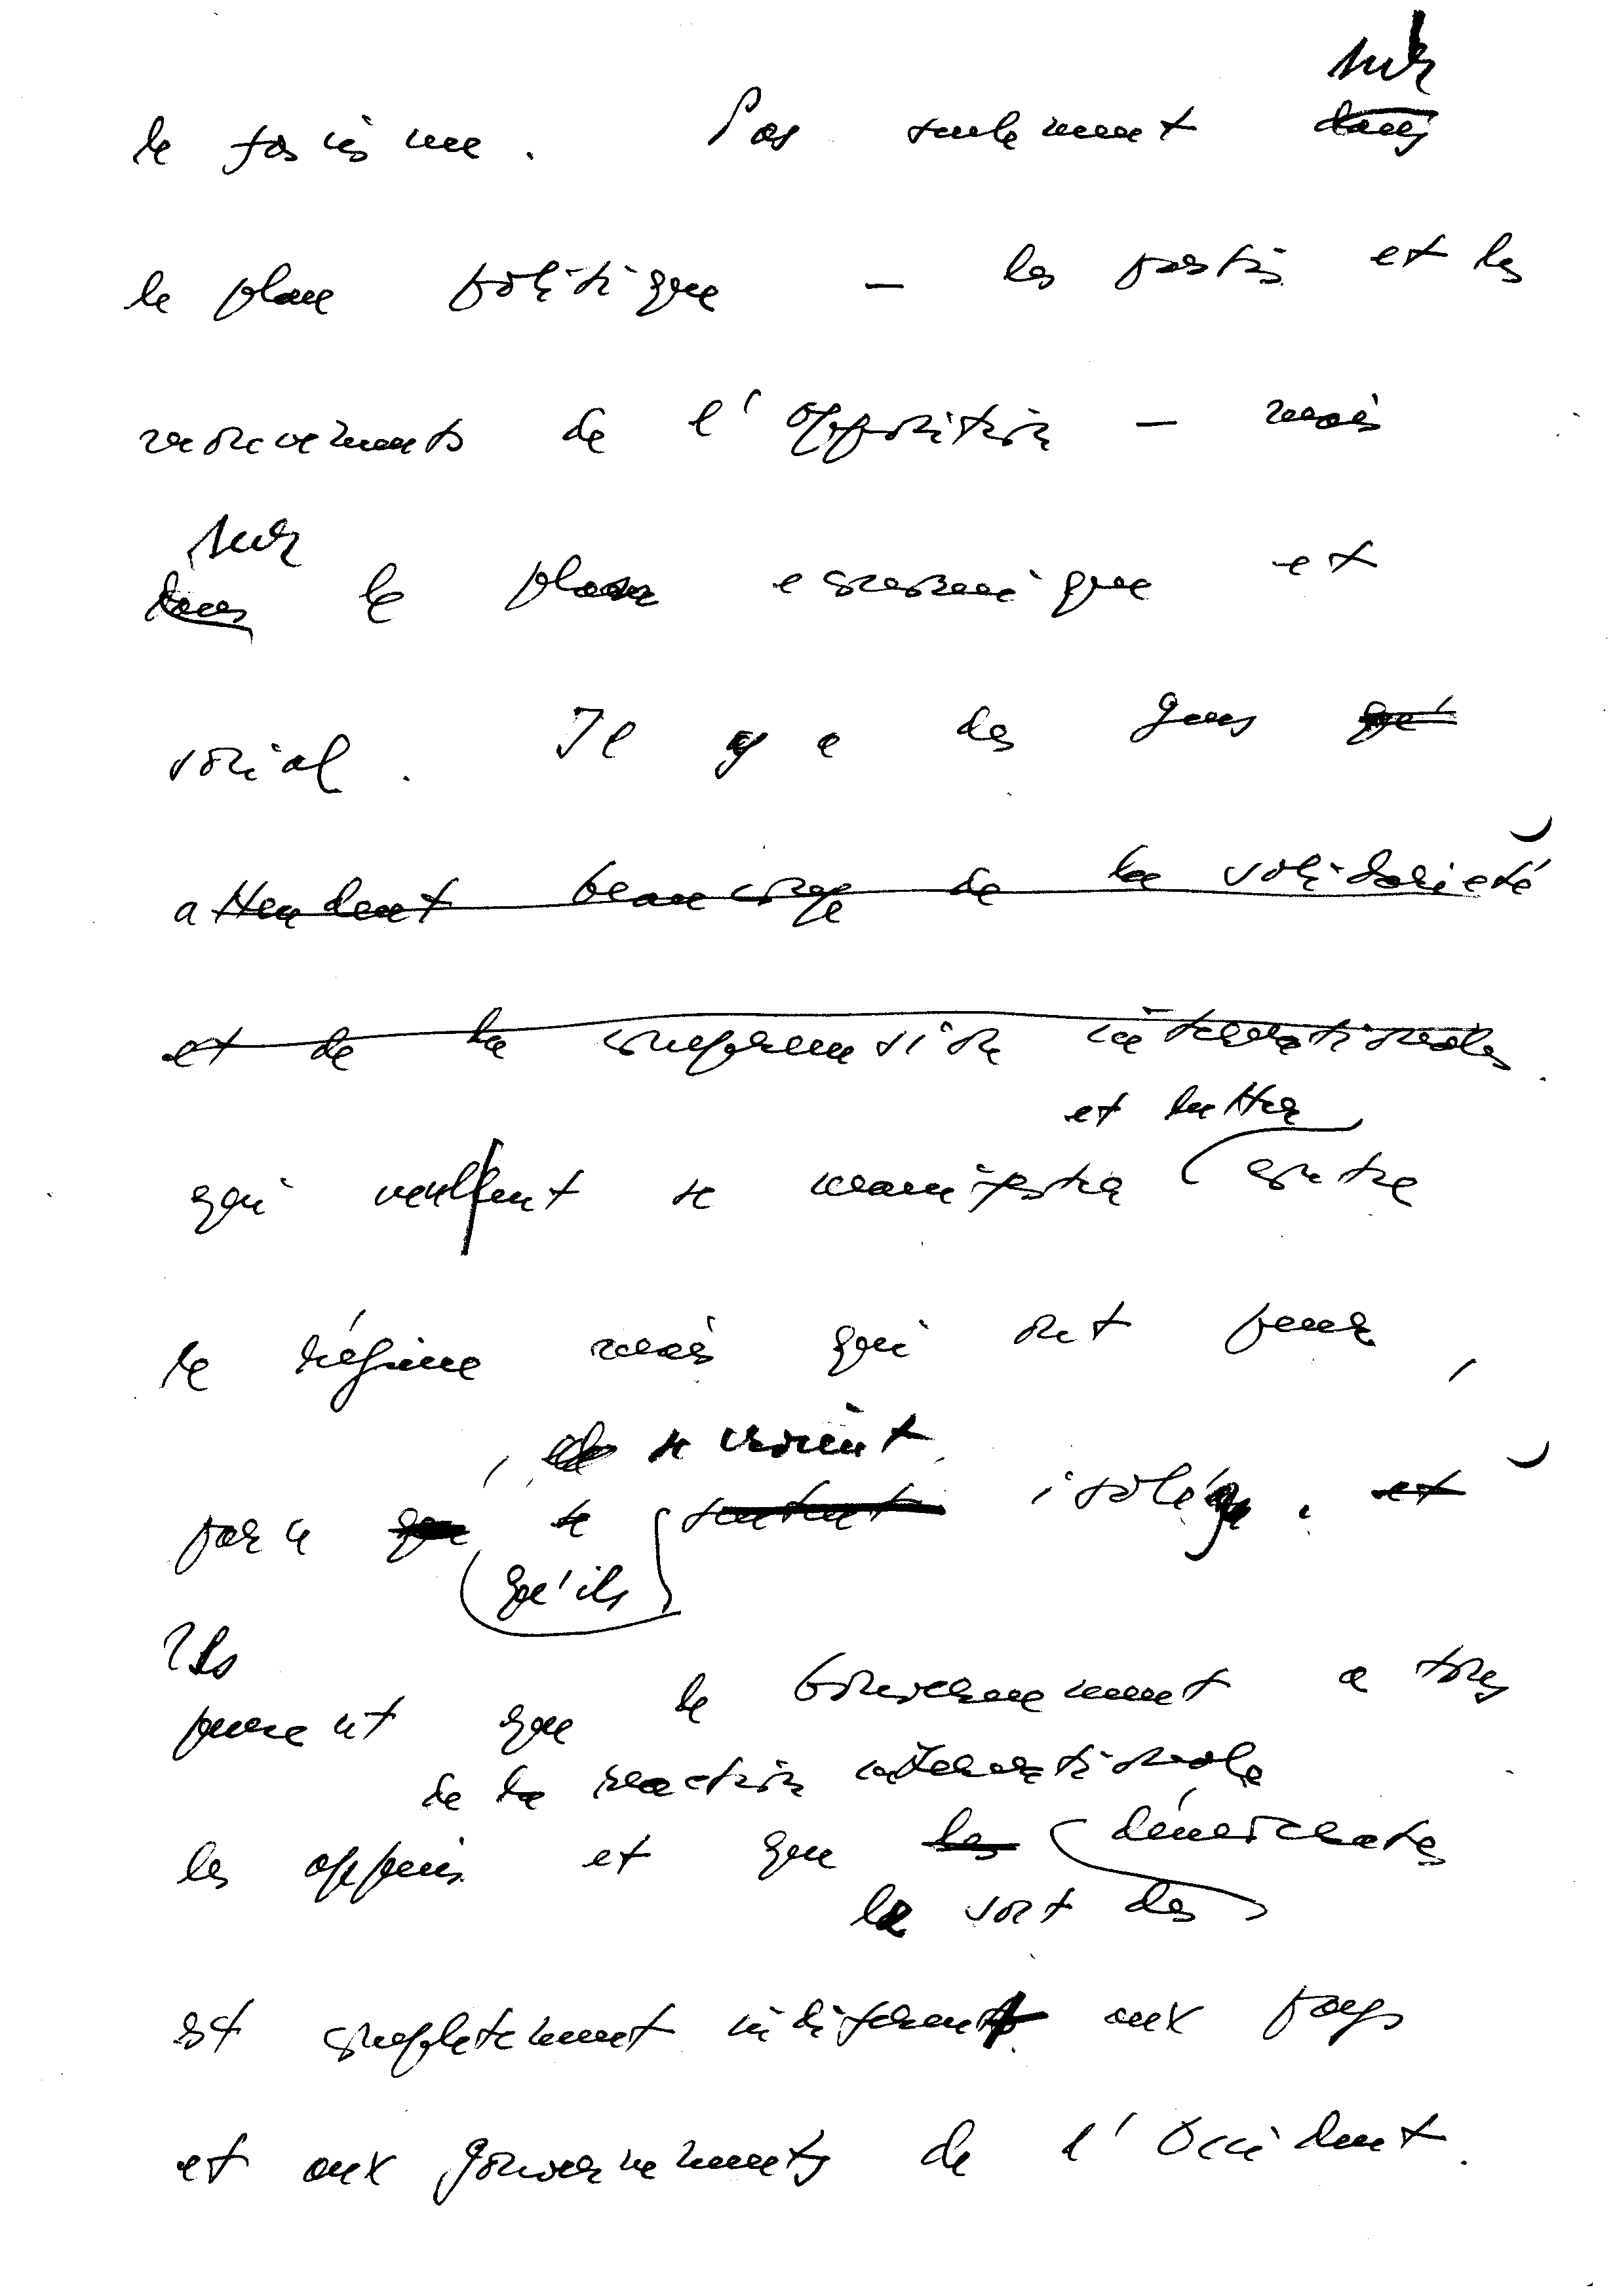 sur
le fascisme. Pas seulement dans
le plan politique — les partis et les
mouvements de l'opposition — mais
sur
dans le plan economique et
social. Il y a des gens qui
attendent beaucoup de la solidarieté
et de la comprension internationales.
et lutter
qui veulent se manifester contre
le régime mais qui ont peur,
se voient
parce que se sentent isolés. et
qu'ils
Ils
pensent que le Gouvernement a tous
de la reaction internationale
les appuis et que les démocrates
le sort des
est completement indiferent aux pays
et aux gouvernements de l'Occident.